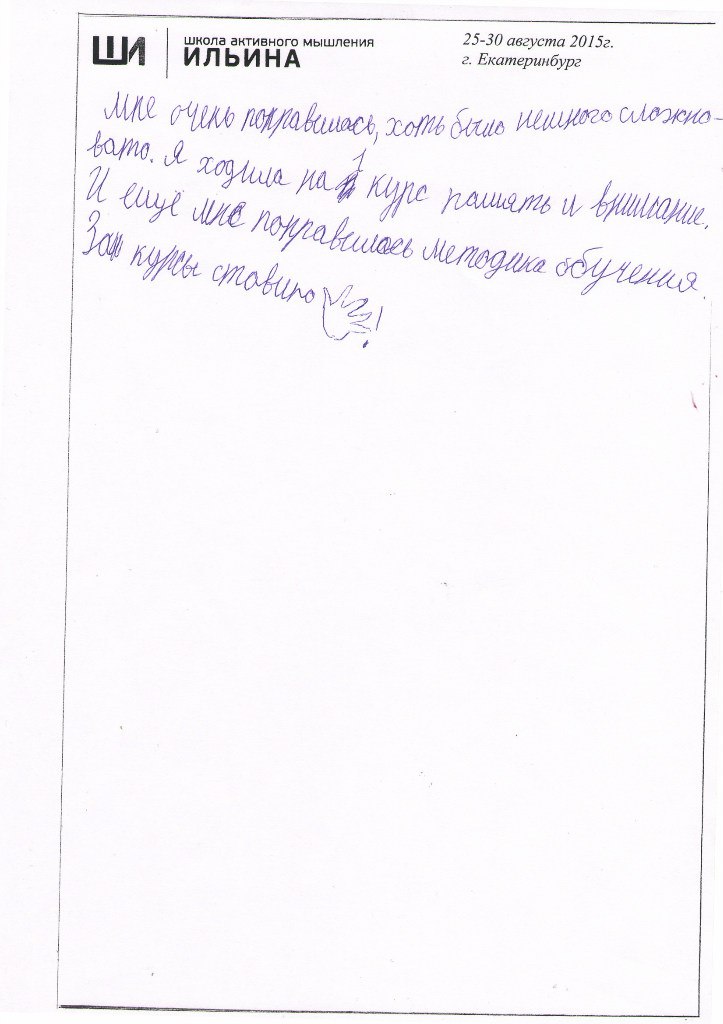 ШИ
школа активного мышления
ИЛЬИНА
25-30 августа 2015г.
г. Екатеринбург
Мне очень понравилось, хоть было немного сложно-
вато. Я ходила на 1 курс память и внимание.
И ещё мне понравилась методика обучения.
За курсы ставлю !